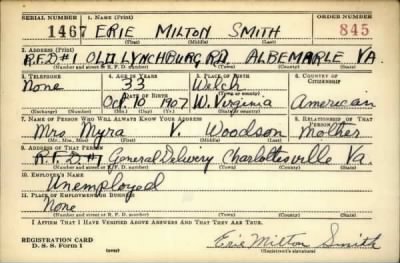 SERIAL NUMBER 1. NAME (Print) ORDER NUMBER
1467 ERIE MILTON SMITH 845
(First) (Middle) (Last)
2. ADDRESS (Print)
R.F.D#1 OLD LYNCHBURG RD ALBEMARLE VA.
(Number and street or R. F. D. number) (Town) (County) (State)
3. TELEPHONE 4. AGE IN YEARS 5. PLACE OF BIRTH 6. COUNTRY OF CITIZENSHIP
None 33 Welch
DATE OF BIRTH (Town or county)
Oct. 10 1907 W. Virginia American
(Exchange) (Number) (Mo.) (Day) (Yr.) (State or country)
7. NAME OF PERSON WHO WILL ALWAYS KNOW YOUR ADDRESS 8. RELATIONSHIP OF THAT PERSON
Mrs. Myra V. Woodson Mother
(Mr., Mrs., Miss) (First) (Middle) (Last)
9. ADDRESS OF THAT PERSON
R.F.D. General Delivery Charlottesville Va.
(Number and street or R. F. D. number) (Town) (County) (State)
10. EMPLOYER'S NAME
Unemployed
11. PLACE OF EMPLOYMENT OR BUSINESS
None
(Number and street or R. F. D. number) (Town) (County) (State)
I AFFIRM THAT I HAVE VERIFIED ABOVE ANSWERS AND THAT THEY ARE TRUE.
REGISTRATION CARD
D. S. S. FORM 1 Erie Milton Smith
(Registrant's signature)